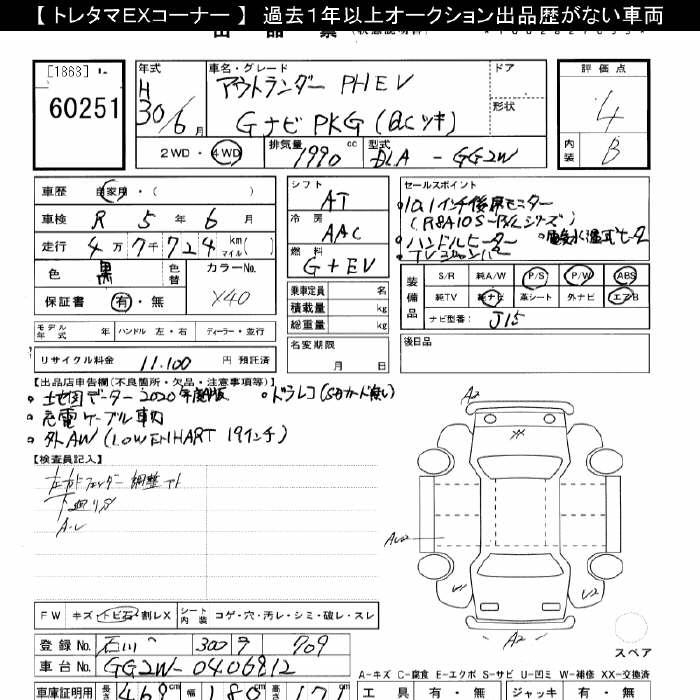 【 トレタマEXコーナー 】 過去1年以上オークション出品歴がない車両
[1863]
60251
年式
H
30/6月
車名・グレード
アウトランダー PHEV
Gナビ PKG (dcツキ)
ドア
形状
評価点
4
内装
B
2WD・4WD
排気量
1990 cc
型式
DLA - GG2W
車歴 自家用・( )
車検 R 5年 6月
走行 4万7千724 km マイル
色 黒 色替
カラーNo. X40
保証書 有・無
モデル年式 年 ハンドル 左・右 ディーラー・並行
リサイクル料金 11,100 円 預託済
シフト AT
冷房 AAC
燃料 G+EV
乗車定員 名
積載量 kg
総重量 kg
名変期限
月 日
セールスポイント
・10.1インチ後席モニター
(R8A10S-R/Lシリーズ)
・ハンドルヒーター ・電気水温式ヒータ
・TVジャンパー
装備品
S/R 純A/W P/S P/W ABS
純TV 純ナビ 革シート 外ナビ エアB
ナビ型番: J15
後日品
【出品店申告欄(不良箇所・欠品・注意事項等)】
・地図データー2020年度版 ・ドラレコ(SDカード無い)
・充電ケーブル車内
・外AW (LOWENHART 19インチ)
【検査員記入】
左右フェンダー 調整アト
下廻りサ
A2
XX
A2
FW キズ・トビ石・割レX
シート内装 コゲ・穴・汚レ・シミ・破レ・スレ
登録No. 石川 300 ラ 709
車台No. GG2W-0406812
スペア
A-キズ C-腐食 E-エクボ S-サビ U-凹ミ W-補修 XX-交換済
車庫証明用 長さ 469 cm 幅 180 cm 高さ 171
工具 有・無 ジャッキ 有・無